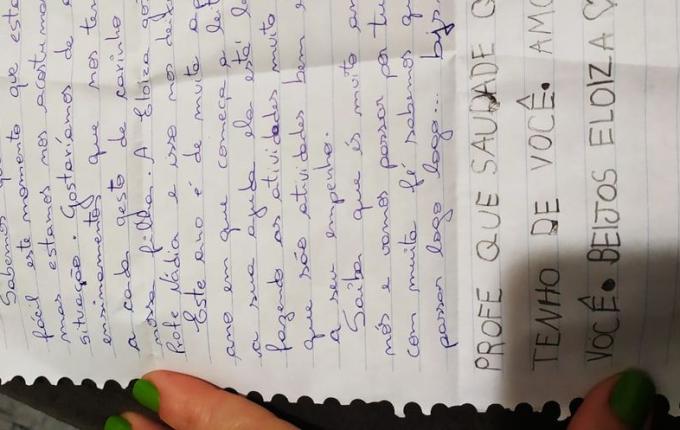 Sabemos que
fácil este momento que esta
mas estamos nos acostuma
situação. Gostaríamos de a
ensinamentos que nos ten
a cada gesto de carinho
nossa filha. A Eloiza go
Profe Nádia e isso nos dei
Este ano é de muito a
ano em que começa a le
a sua ajuda ela está le
fazendo as atividades muito
que são atividades bem
a seu empenho.
Saiba que és muito am
nós e vamos passar por tu
com muita fé sabemos qu
passar logo logo... bjs...
PROFE QUE SAUDADE Q
TENHO DE VOCÊ. AMO
VOCÊ. BEIJOS ELOIZA ♡